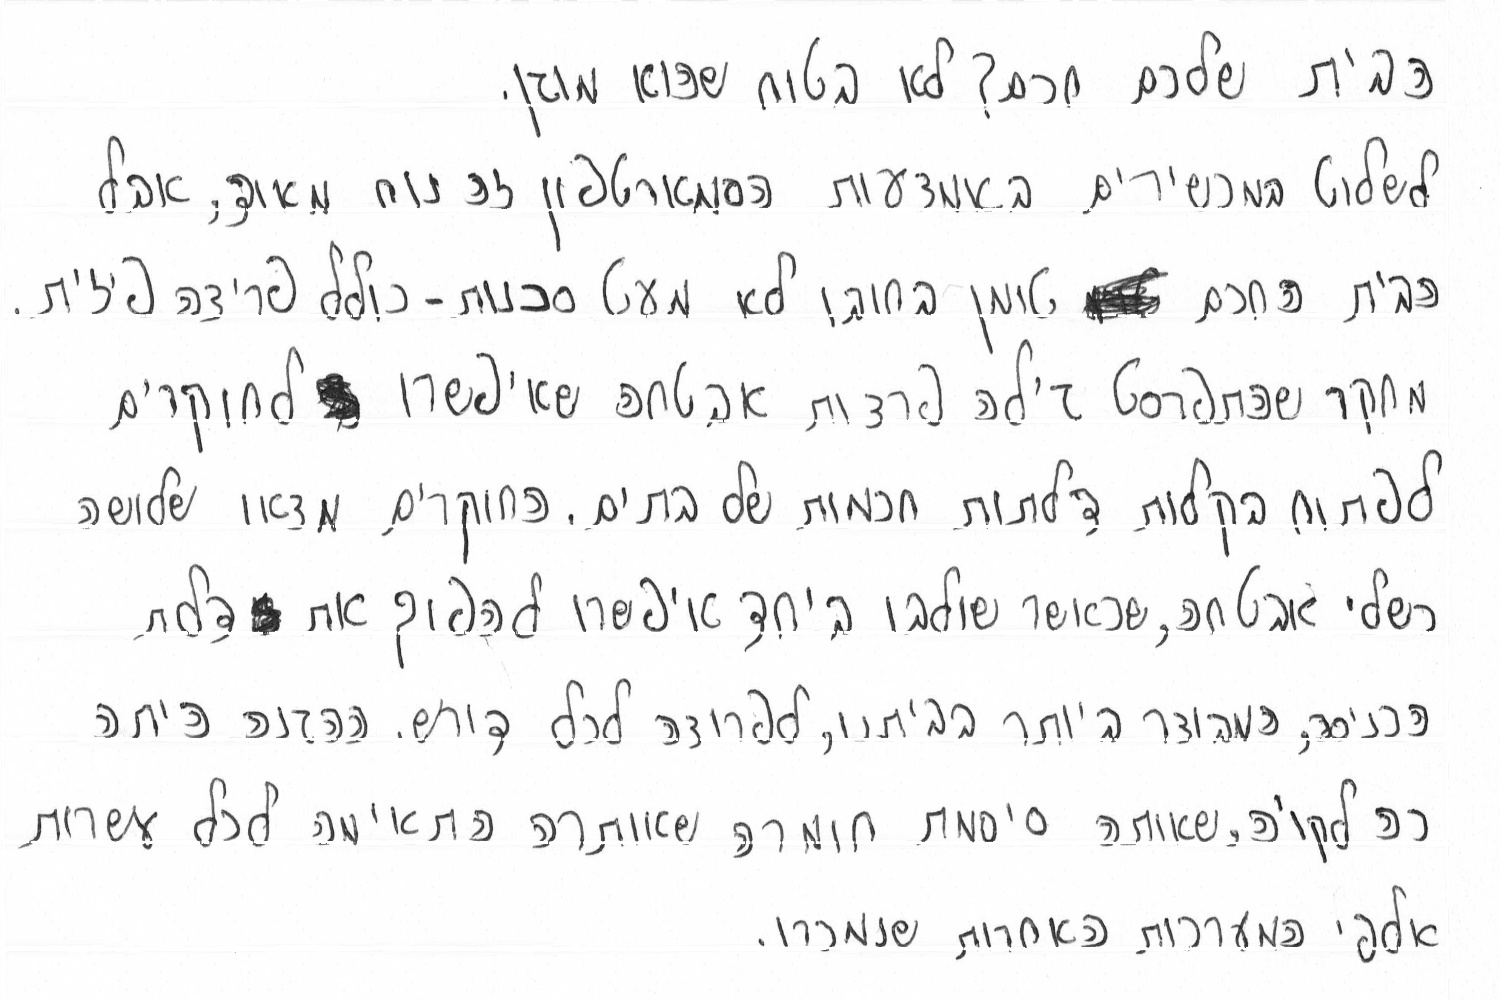 הבית שלכם חכם? לא בטוח שהוא מוגן.
לשלוט במכשירים באמצעות הסמארטפון זה נוח מאוד, אבל
הבית החכם טומן בחובו לא מעט סכנות - כולל פריצה פיזית.
מחקר שהתפרסם גילה פרצות אבטחה שאיפשרו לחוקרים
לפתוח בקלות דלתות חכמות של בתים. החוקרים מצאו שלושה
כשלי אבטחה, שכאשר שולבו ביחד איפשרו להפוך את דלת
הכניסה, המבוצר ביותר בביתנו, לפרוצה לכל דורש. ההגנה היתה
כה לקויה, שאותה סיסמת חומרה שאותרה התאימה לכל עשרות
אלפי המערכות האחרות שנמכרו.